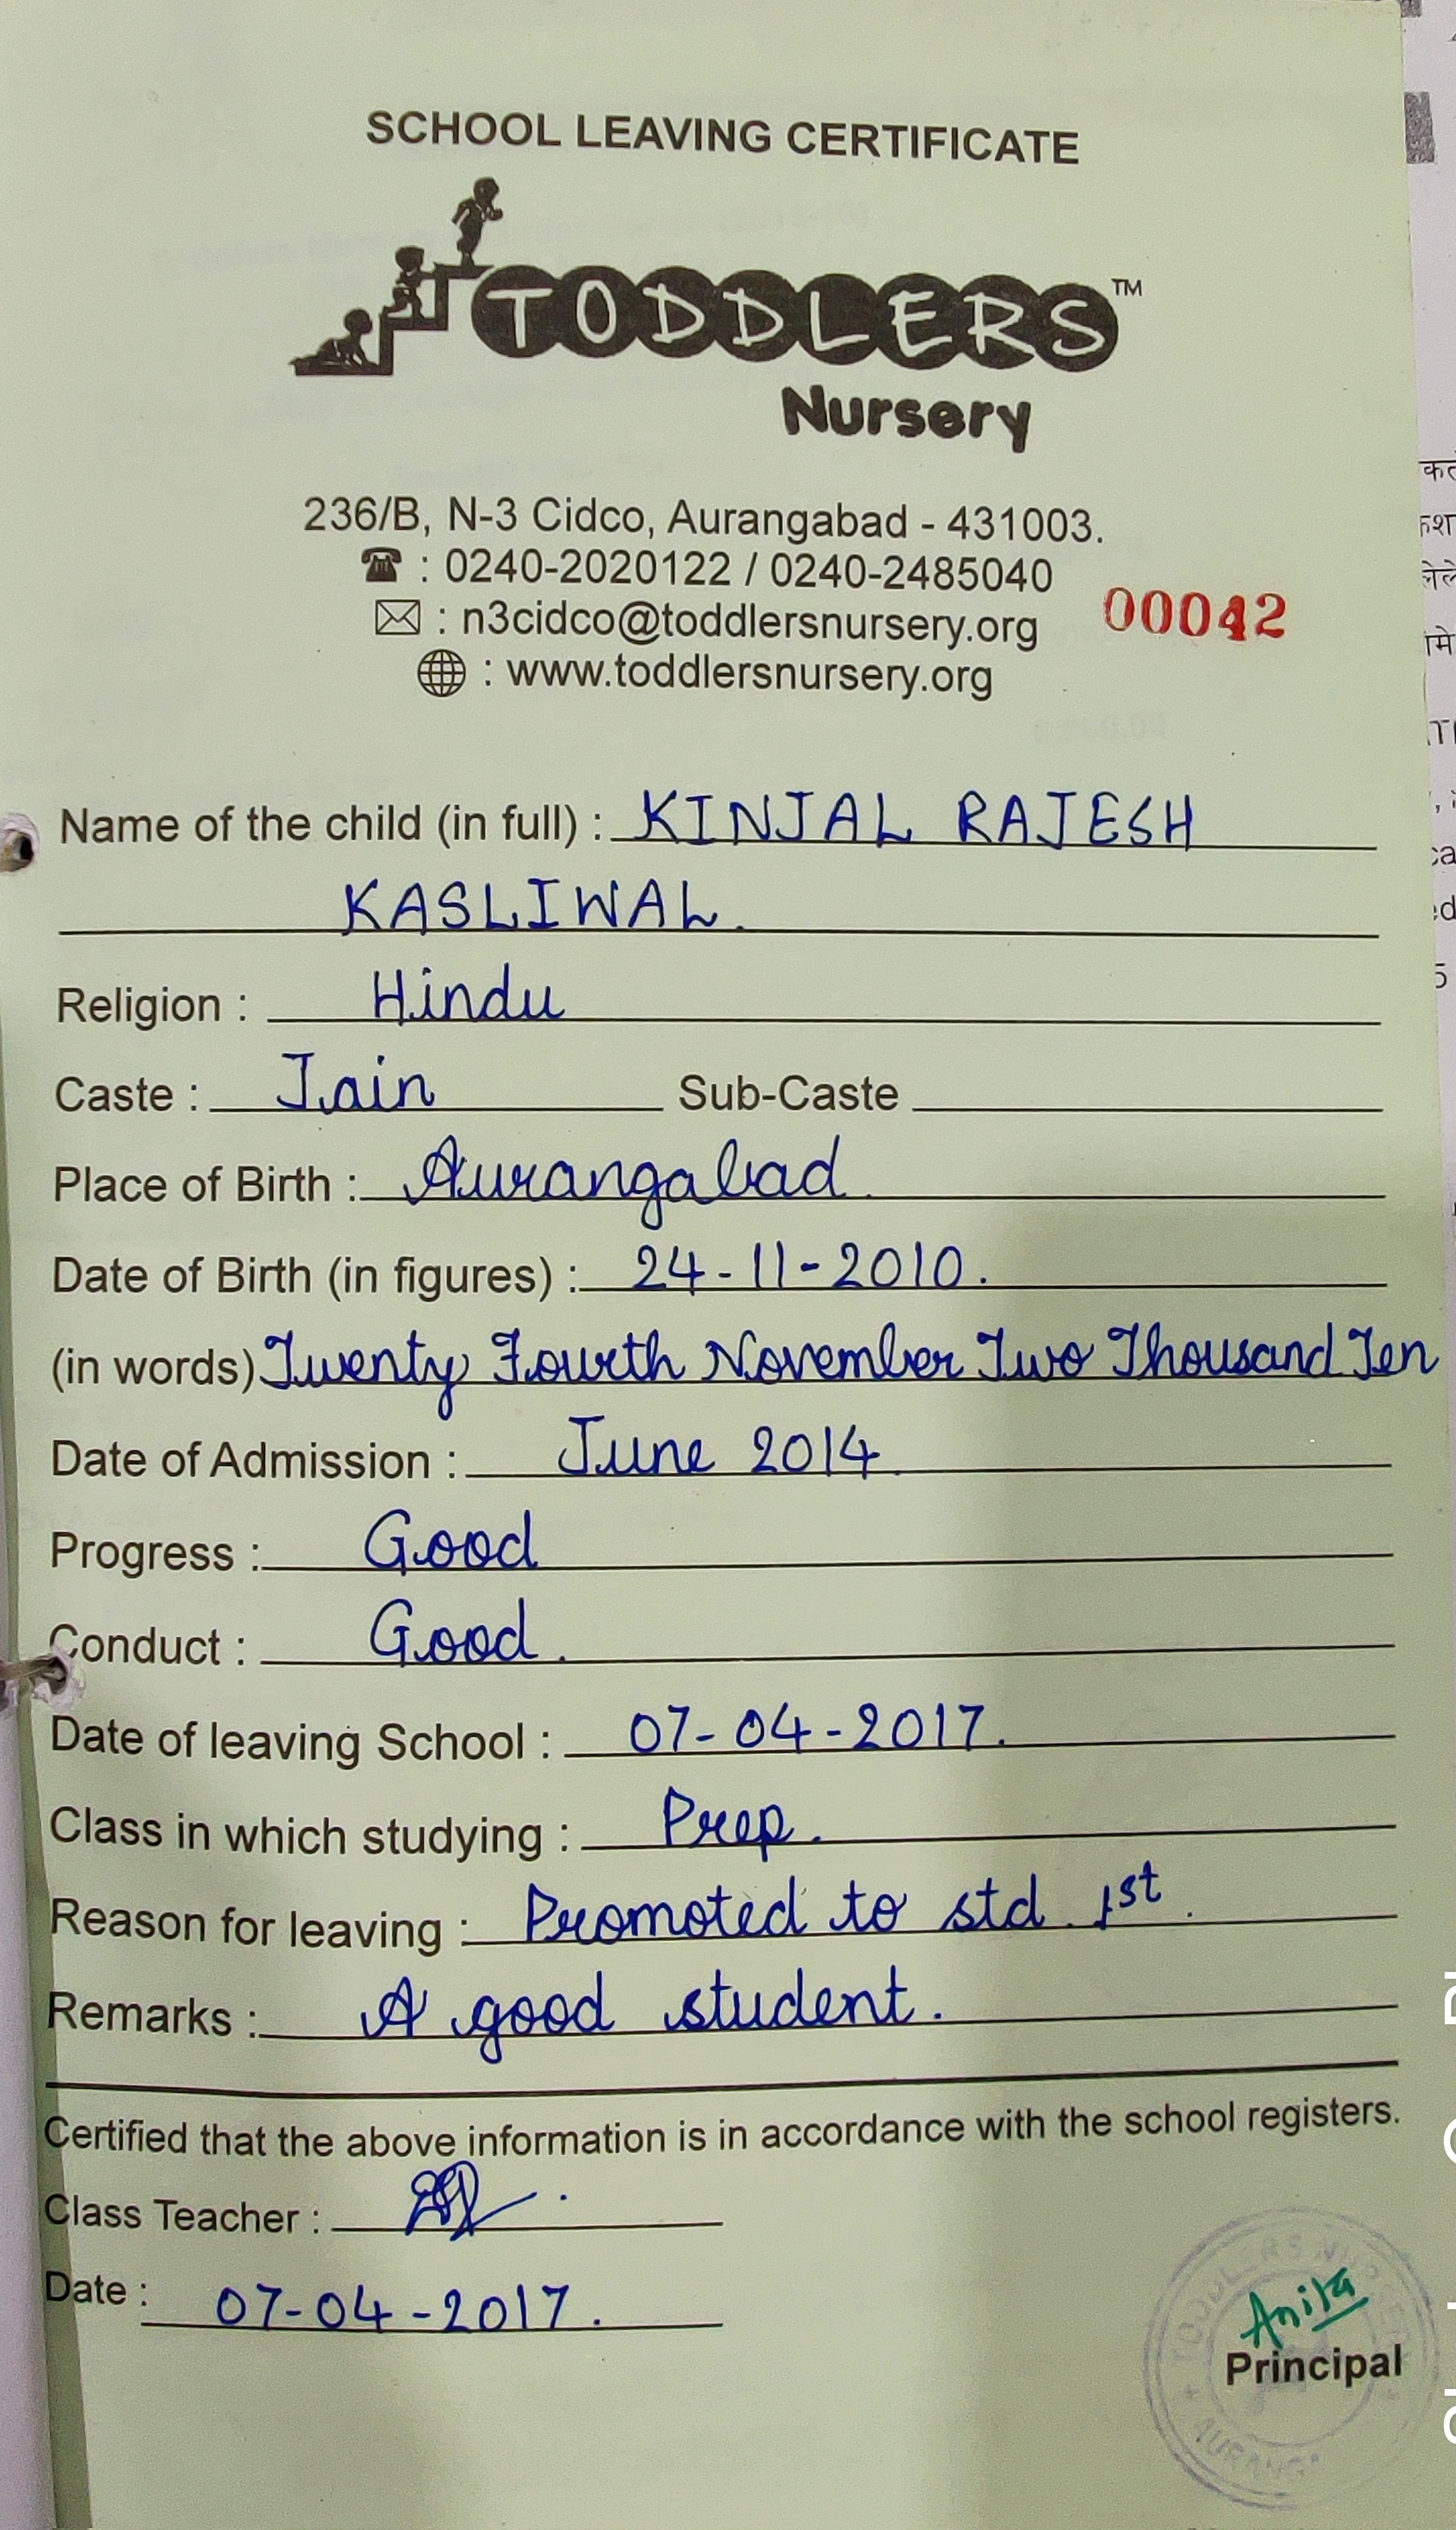 SCHOOL LEAVING CERTIFICATE
TODDLERS™
Nursery
236/B, N-3 Cidco, Aurangabad - 431003.
: 0240-2020122 / 0240-2485040
: n3cidco@toddlersnursery.org 00042
: www.toddlersnursery.org
Name of the child (in full) : KINJAL RAJESH
KASLIWAL.
Religion : Hindu
Caste : Jain Sub-Caste
Place of Birth : Aurangabad.
Date of Birth (in figures) : 24-11-2010.
(in words) Twenty Fourth November Two Thousand Ten
Date of Admission : June 2014.
Progress : Good
Conduct : Good.
Date of leaving School : 07-04-2017.
Class in which studying : Prep.
Reason for leaving : Promoted to std 1st.
Remarks : A good student.
Certified that the above information is in accordance with the school registers.
Class Teacher :
Date : 07-04-2017.
Anita
Principal
TODDLERS NURSERY